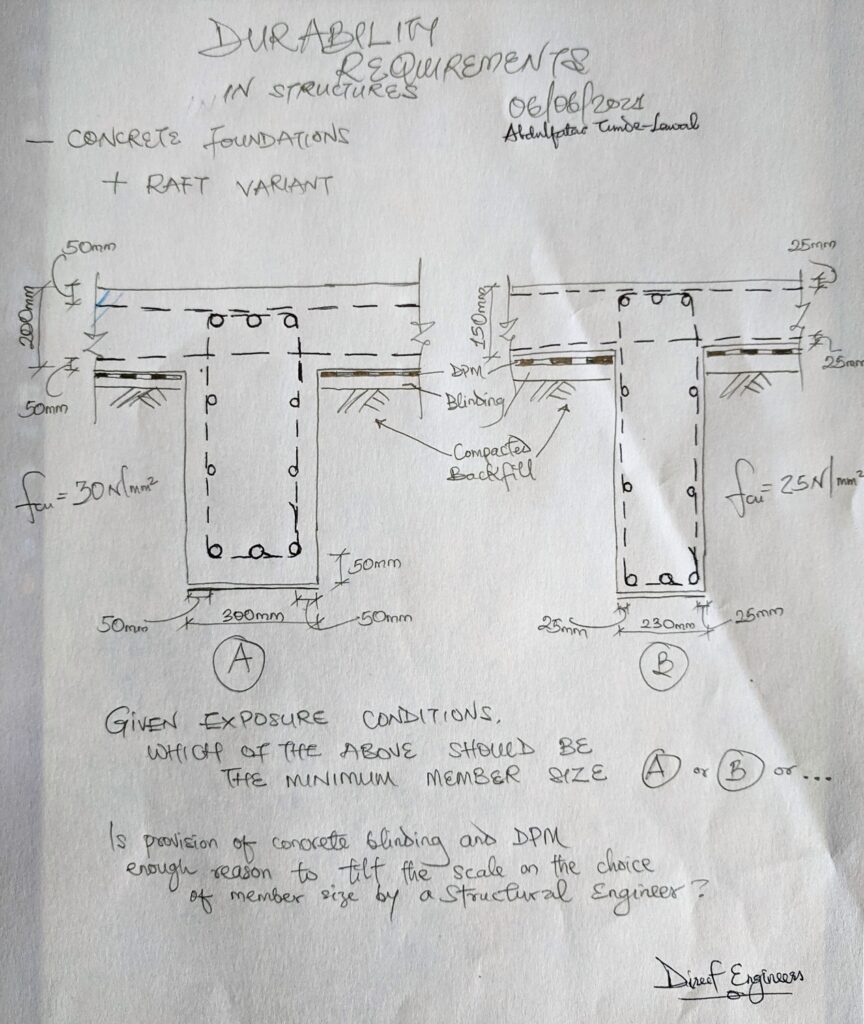 DURABILITY
REQUIREMENTS
IN STRUCTURES
06/06/2021
Abdulfatai Tunde-Lawal
— CONCRETE FOUNDATIONS
+ RAFT VARIANT
50mm
200mm
50mm
25mm
150mm
25mm
DPM
Blinding
Compacted
Backfill
fcu = 30N/mm²
fcu = 25N/mm²
50mm
50mm
300mm
50mm
25mm
230mm
25mm
A
B
GIVEN EXPOSURE CONDITIONS,
WHICH OF THE ABOVE SHOULD BE
THE MINIMUM MEMBER SIZE A or B or ...
Is provision of concrete blinding and DPM
enough reason to tilt the scale on the choice
of member size by a Structural Engineer?
Direct Engineers